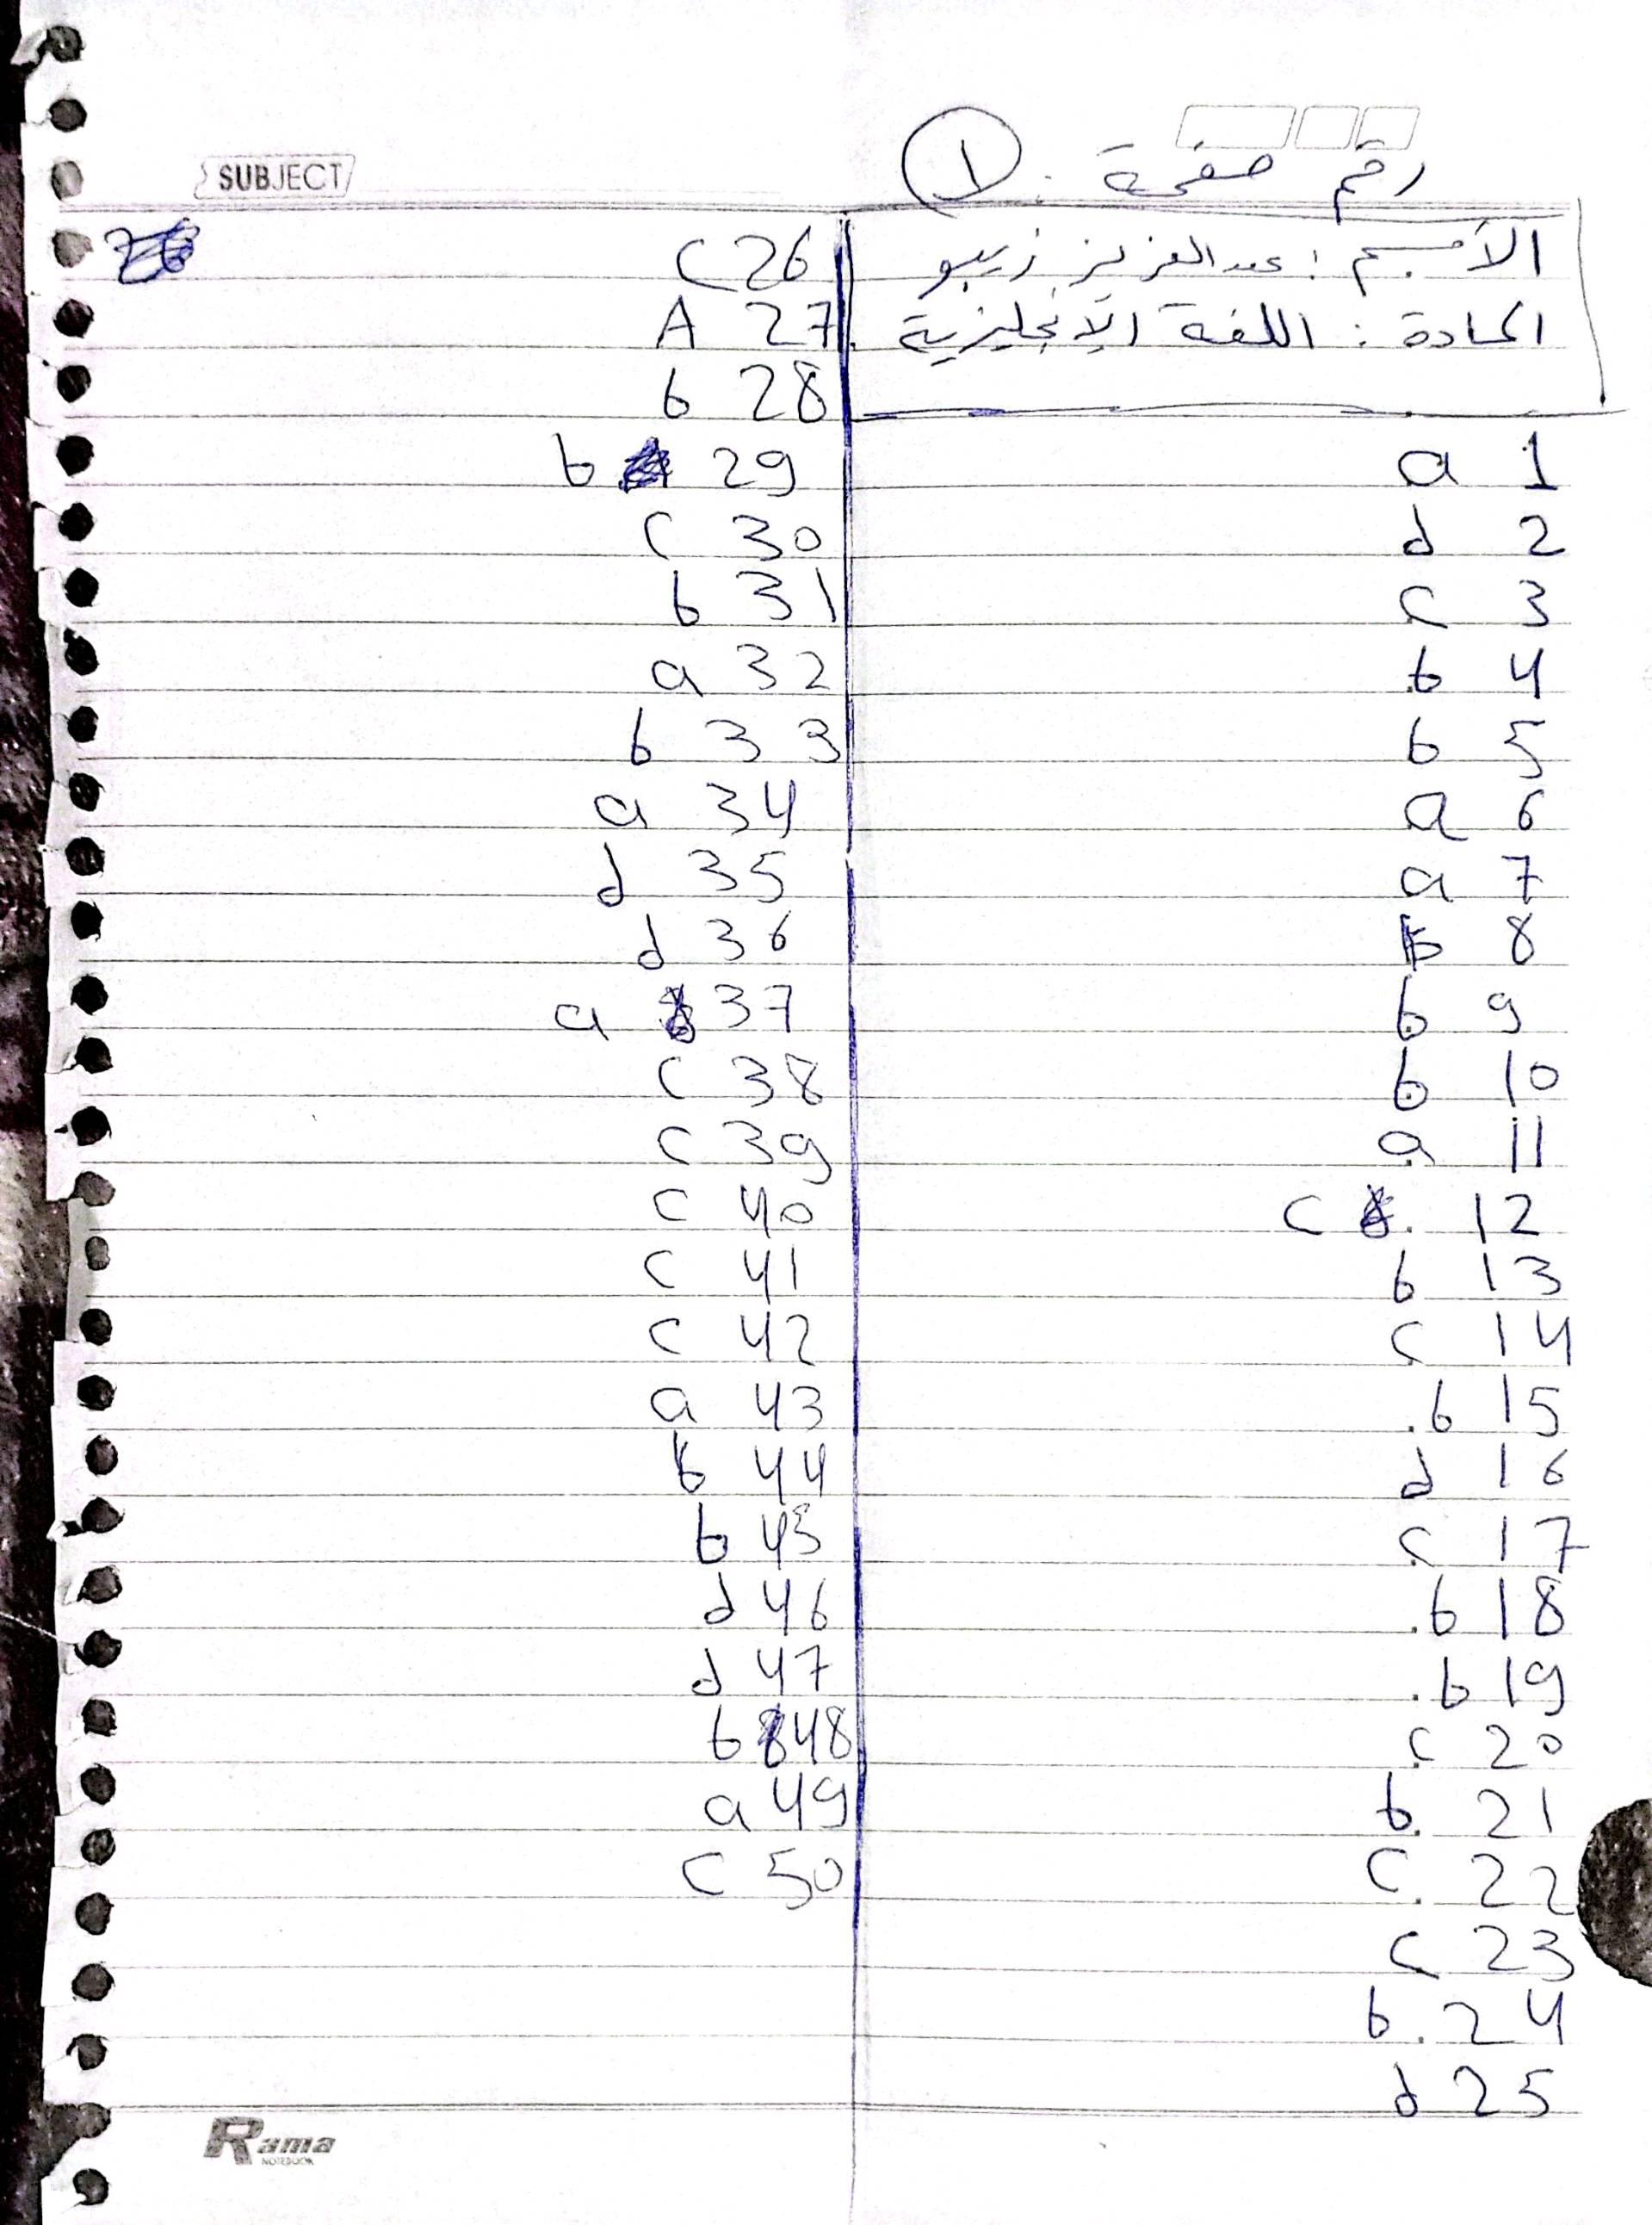 رقم صفحة : ١
SUBJECT
الأسم : عبد العزيز زيبو
المادة : اللغة الإنجليزية
a 1
d 2
c 3
b 4
b 5
a 6
a 7
b 8
b 9
b 10
a 11
c 12
b 13
c 14
b 15
d 16
c 17
b 18
b 19
c 20
b 21
c 22
c 23
b 24
d 25
c 26
A 27
b 28
b 29
c 30
b 31
a 32
b 33
a 34
d 35
d 36
a 37
c 38
c 39
c 40
c 41
c 42
a 43
b 44
b 45
d 46
d 47
b 48
a 49
c 50
Rama
NOTEBOOK